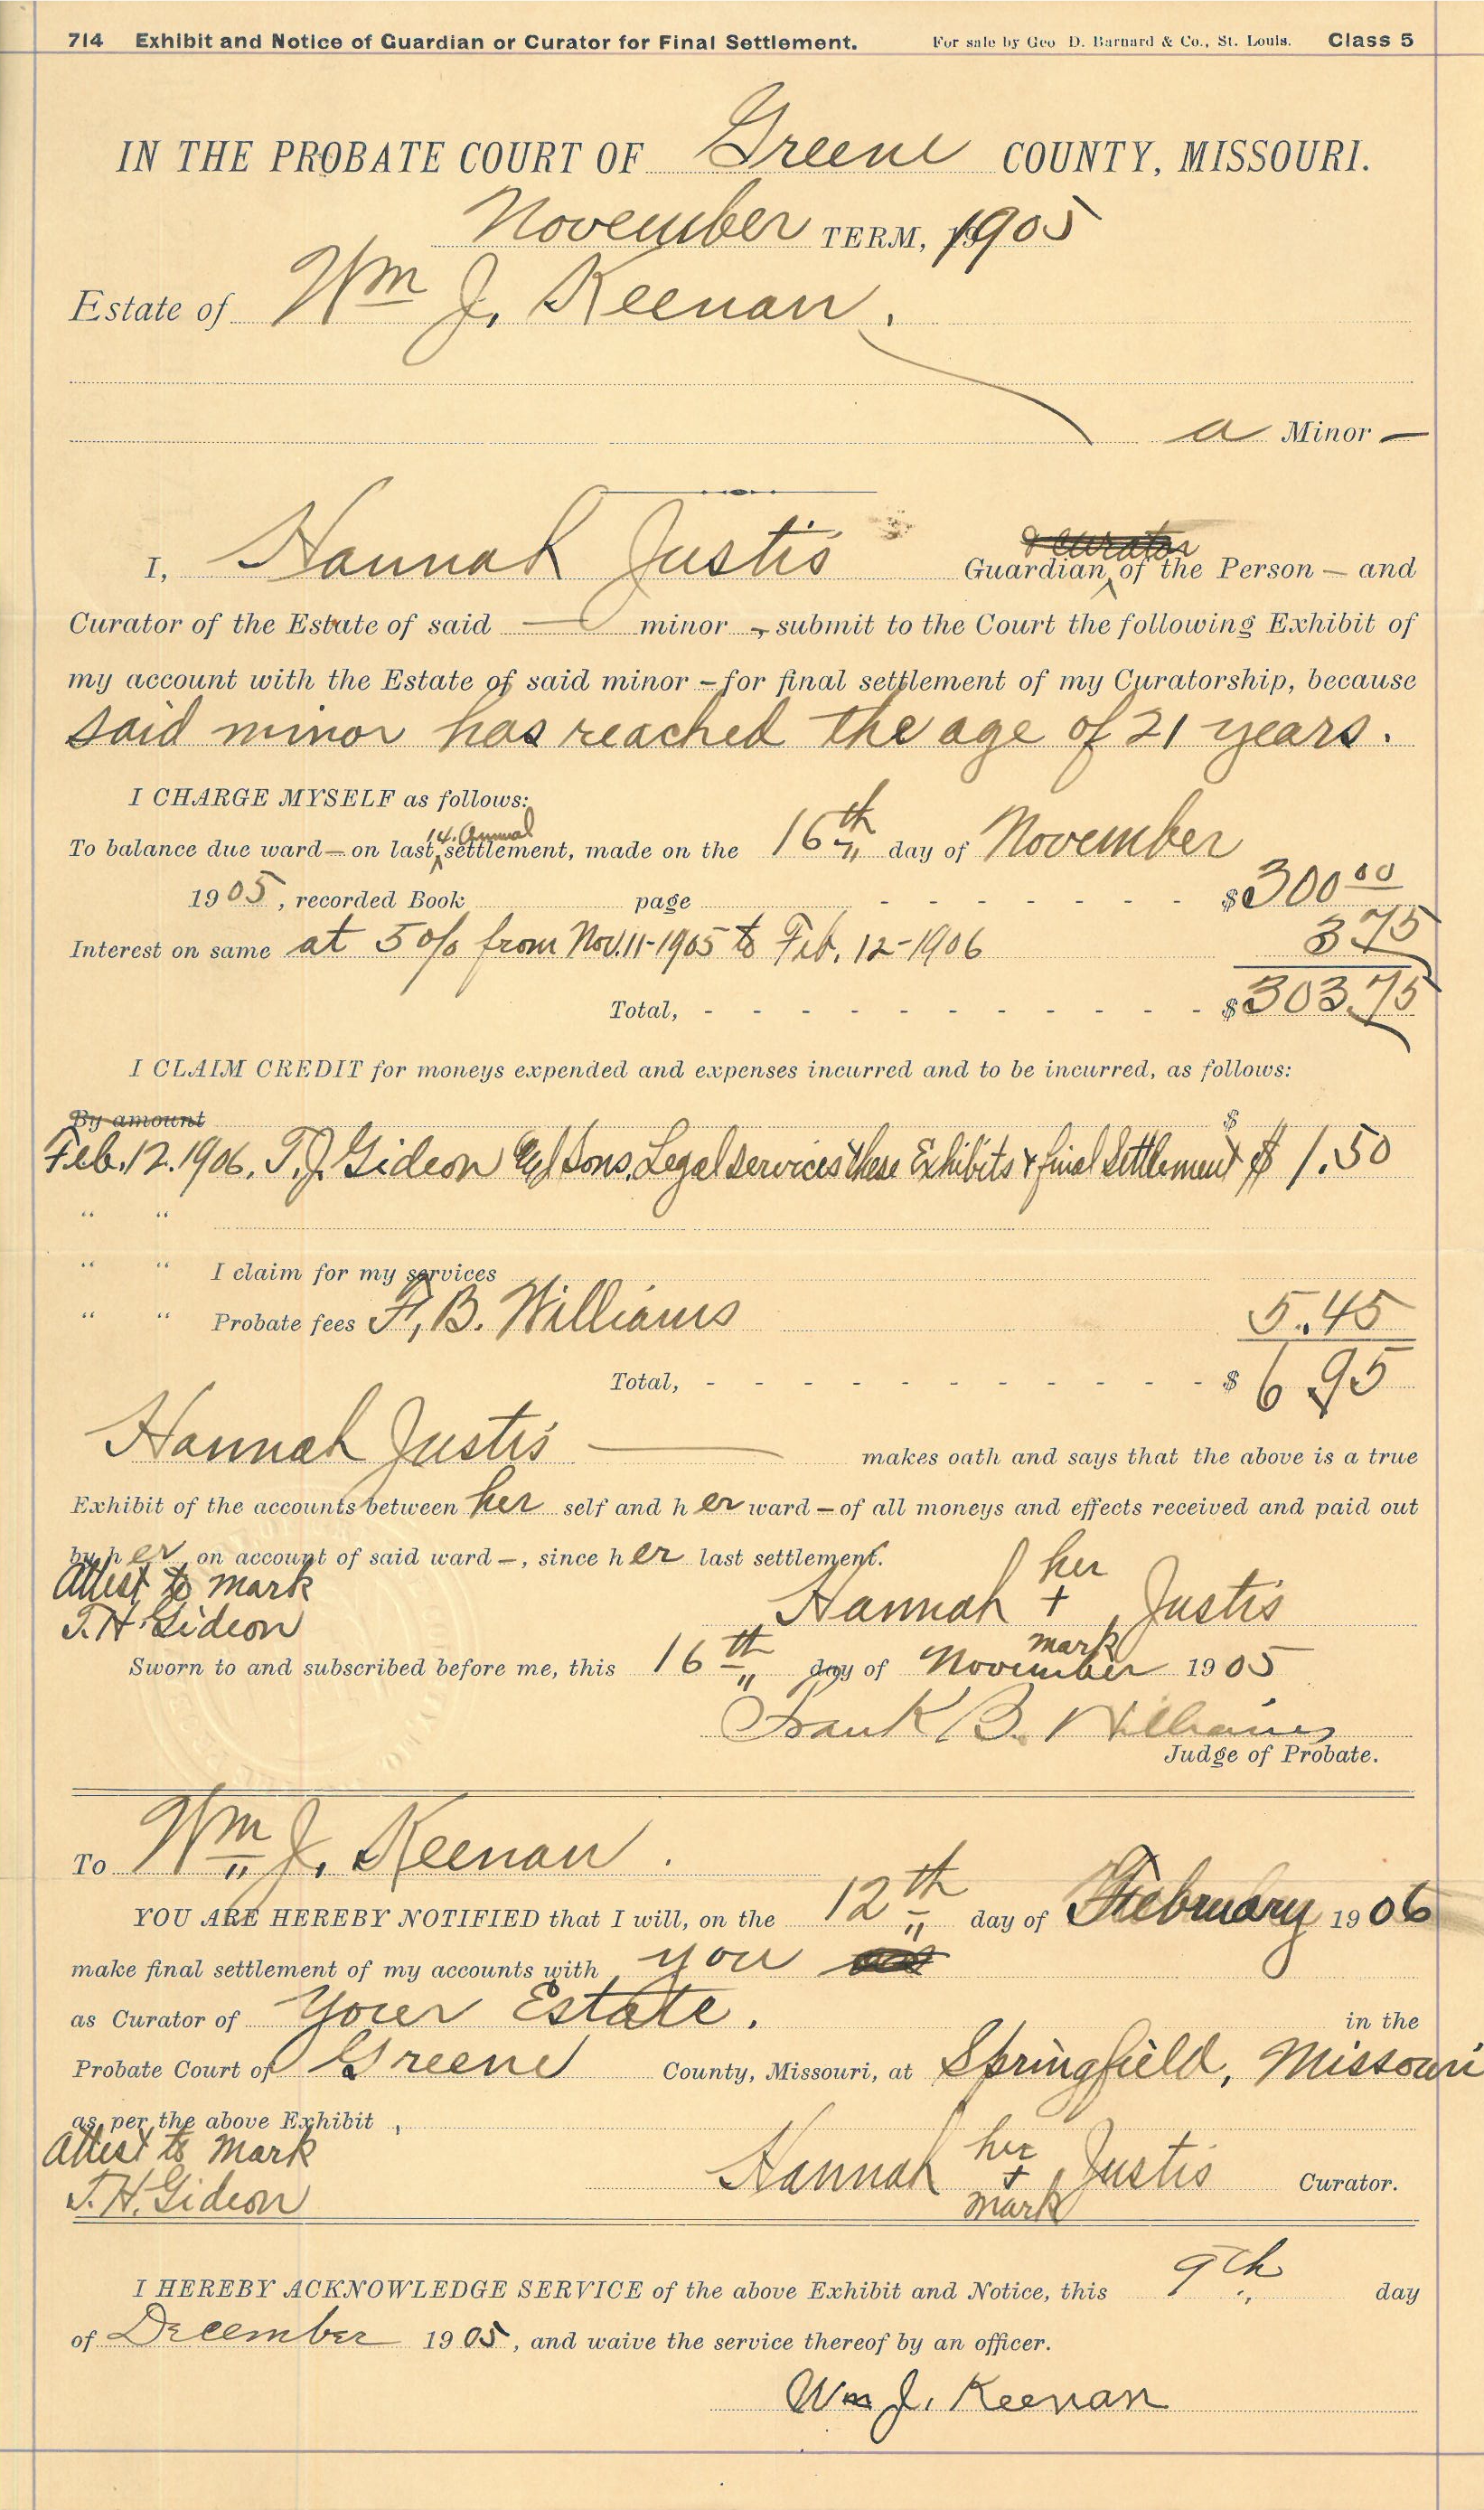 714 Exhibit and Notice of Guardian or Curator for Final Settlement. For sale by Geo D. Barnard & Co., St. Louis. Class 5
IN THE PROBATE COURT OF Greene COUNTY, MISSOURI.
November TERM, 1905
Estate of Wm J. Keenan.
a Minor —
& Curator
I, Hannah Justis Guardian of the Person — and
Curator of the Estate of said — minor - submit to the Court the following Exhibit of
my account with the Estate of said minor - for final settlement of my Curatorship, because
said minor has reached the age of 21 years.
I CHARGE MYSELF as follows:
14. Annual
To balance due ward — on last settlement, made on the 16th day of November
1905, recorded Book page - - - - - - - $300 00
Interest on same at 5% from Nov. 11-1905 to Feb. 12-1906 3 75
Total, - - - - - - - - - - - $303.75
I CLAIM CREDIT for moneys expended and expenses incurred and to be incurred, as follows:
By amount $
Feb. 12. 1906. T. J. Gideon & Sons, Legal services these Exhibits & final Settlement $ 1.50
" "
" " I claim for my services
" " Probate fees F. B. Williams 5.45
Total, - - - - - - - - - - - $ 6 95
Hannah Justis — makes oath and says that the above is a true
Exhibit of the accounts between her self and her ward — of all moneys and effects received and paid out
by her, on account of said ward —, since her last settlement.
Attest to mark her
T. H. Gideon Hannah + Justis
mark
Sworn to and subscribed before me, this 16th day of November 1905
Frank B. Williams
Judge of Probate.
To Wm J. Keenan.
YOU ARE HEREBY NOTIFIED that I will, on the 12th day of February 1906
make final settlement of my accounts with you
as Curator of Your Estate. in the
Probate Court of Greene County, Missouri, at Springfield, Missouri
as per the above Exhibit,
Attest to mark her
T. H. Gideon Hannah + Justis Curator.
mark
I HEREBY ACKNOWLEDGE SERVICE of the above Exhibit and Notice, this 9th day
of December 1905, and waive the service thereof by an officer.
Wm J. Keenan